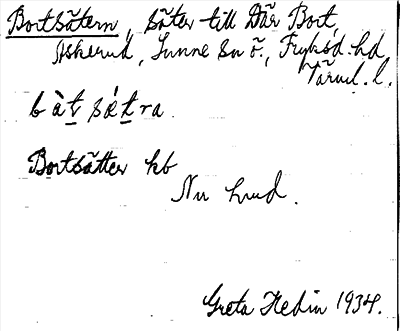 Bortsätern, säter till Där Bort,
Askerud, Sunne sn ö., Fryksd. hd
Värml. l.
bàt sǽtra.
Bortsätter kb
Nu hrud.
Greta Hedin 1934.